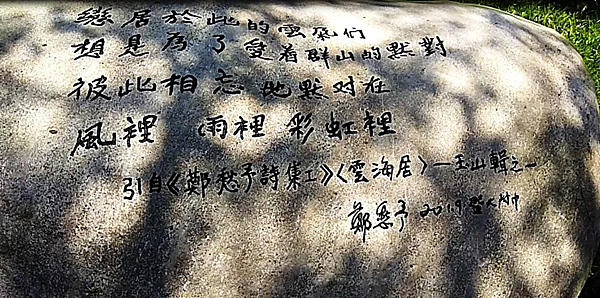 戀居於此的雲朵們
想是為了愛着群山的默對
彼此相忘地默对在
風裡 雨裡 彩虹裡
引自《鄭愁予詩集I》〈雲海居〉—玉山輯之一
鄭愁予 2019